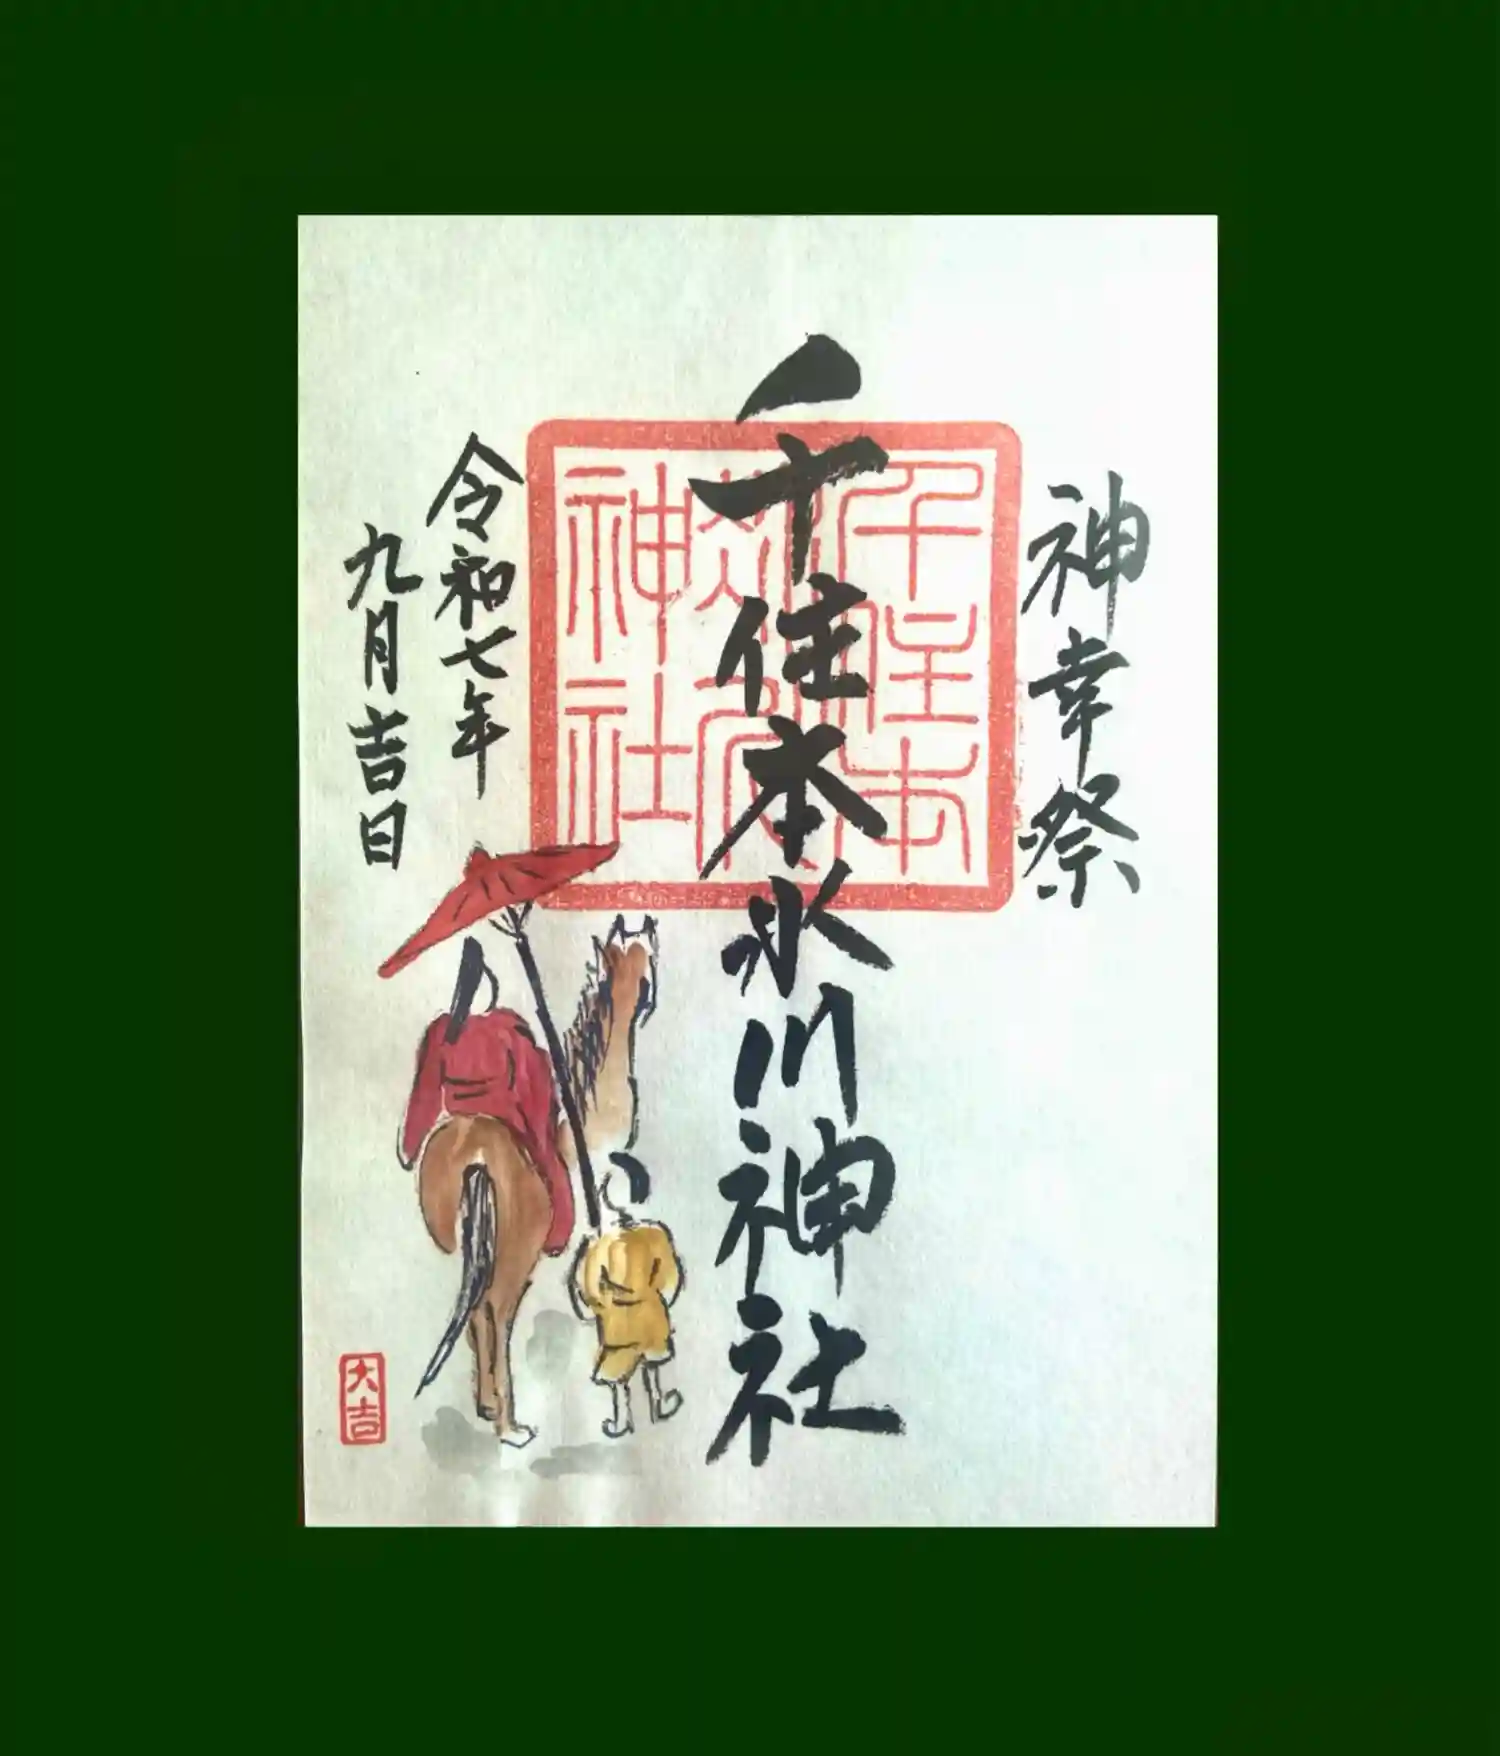 神幸祭
千住本氷川神社
千住本
氷川
神社
令和七年
九月吉日
大吉